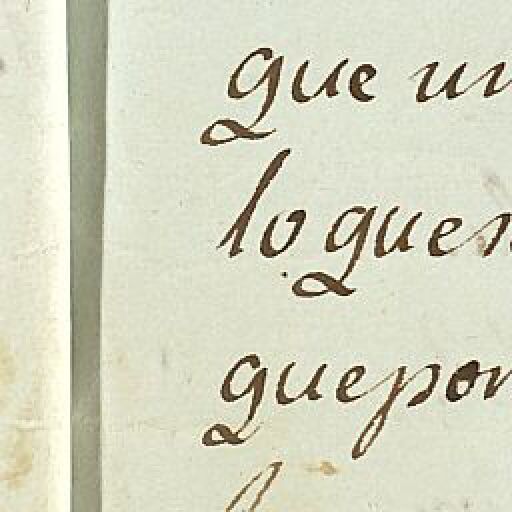 que un
lo quen
quepon